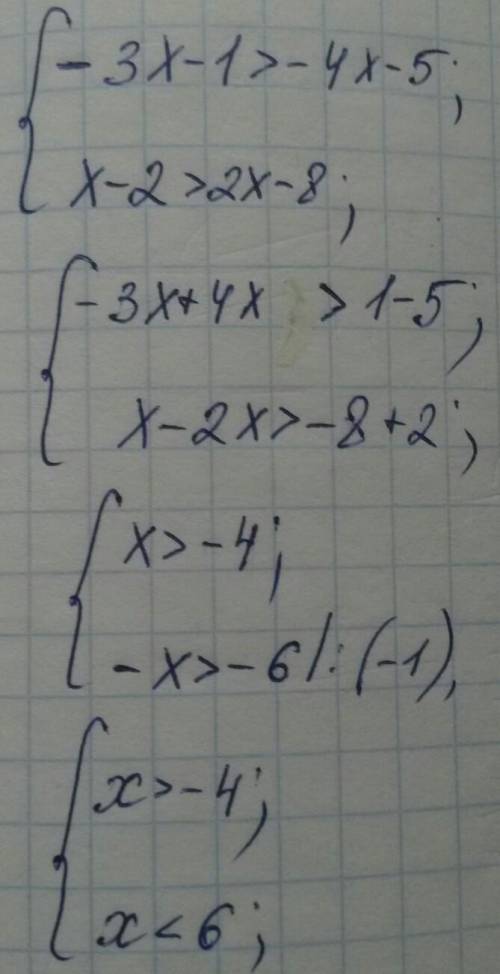 - 3x-1>-4x-5;
x-2>2x-8;
-3x+4x > 1-5;
x-2x>-8+2;
x>-4;
-x>-6 |:(-1),
x>-4;
x<6;